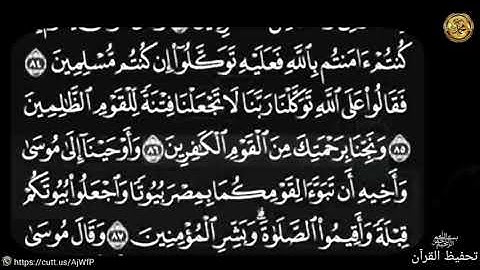 كُنتُمْ ءَامَنتُم بِٱللَّهِ فَعَلَيْهِ تَوَكَّلُوٓا۟ إِن كُنتُم مُّسْلِمِينَ ٨٤
فَقَالُوا۟ عَلَى ٱللَّهِ تَوَكَّلْنَا رَبَّنَا لَا تَجْعَلْنَا فِتْنَةً لِّلْقَوْمِ ٱلظَّـٰلِمِينَ
٨٥ وَنَجِّنَا بِرَحْمَتِكَ مِنَ ٱلْقَوْمِ ٱلْكَـٰفِرِينَ ٨٦ وَأَوْحَيْنَآ إِلَىٰ مُوسَىٰ
وَأَخِيهِ أَن تَبَوَّءَا لِقَوْمِكُمَا بِمِصْرَ بُيُوتًا وَٱجْعَلُوا۟ بُيُوتَكُمْ
قِبْلَةً وَأَقِيمُوا۟ ٱلصَّلَوٰةَ ۗ وَبَشِّرِ ٱلْمُؤْمِنِينَ ٨٧ وَقَالَ مُوسَىٰ
https://cutt.us/AjWfP
تحفيظ القرآن